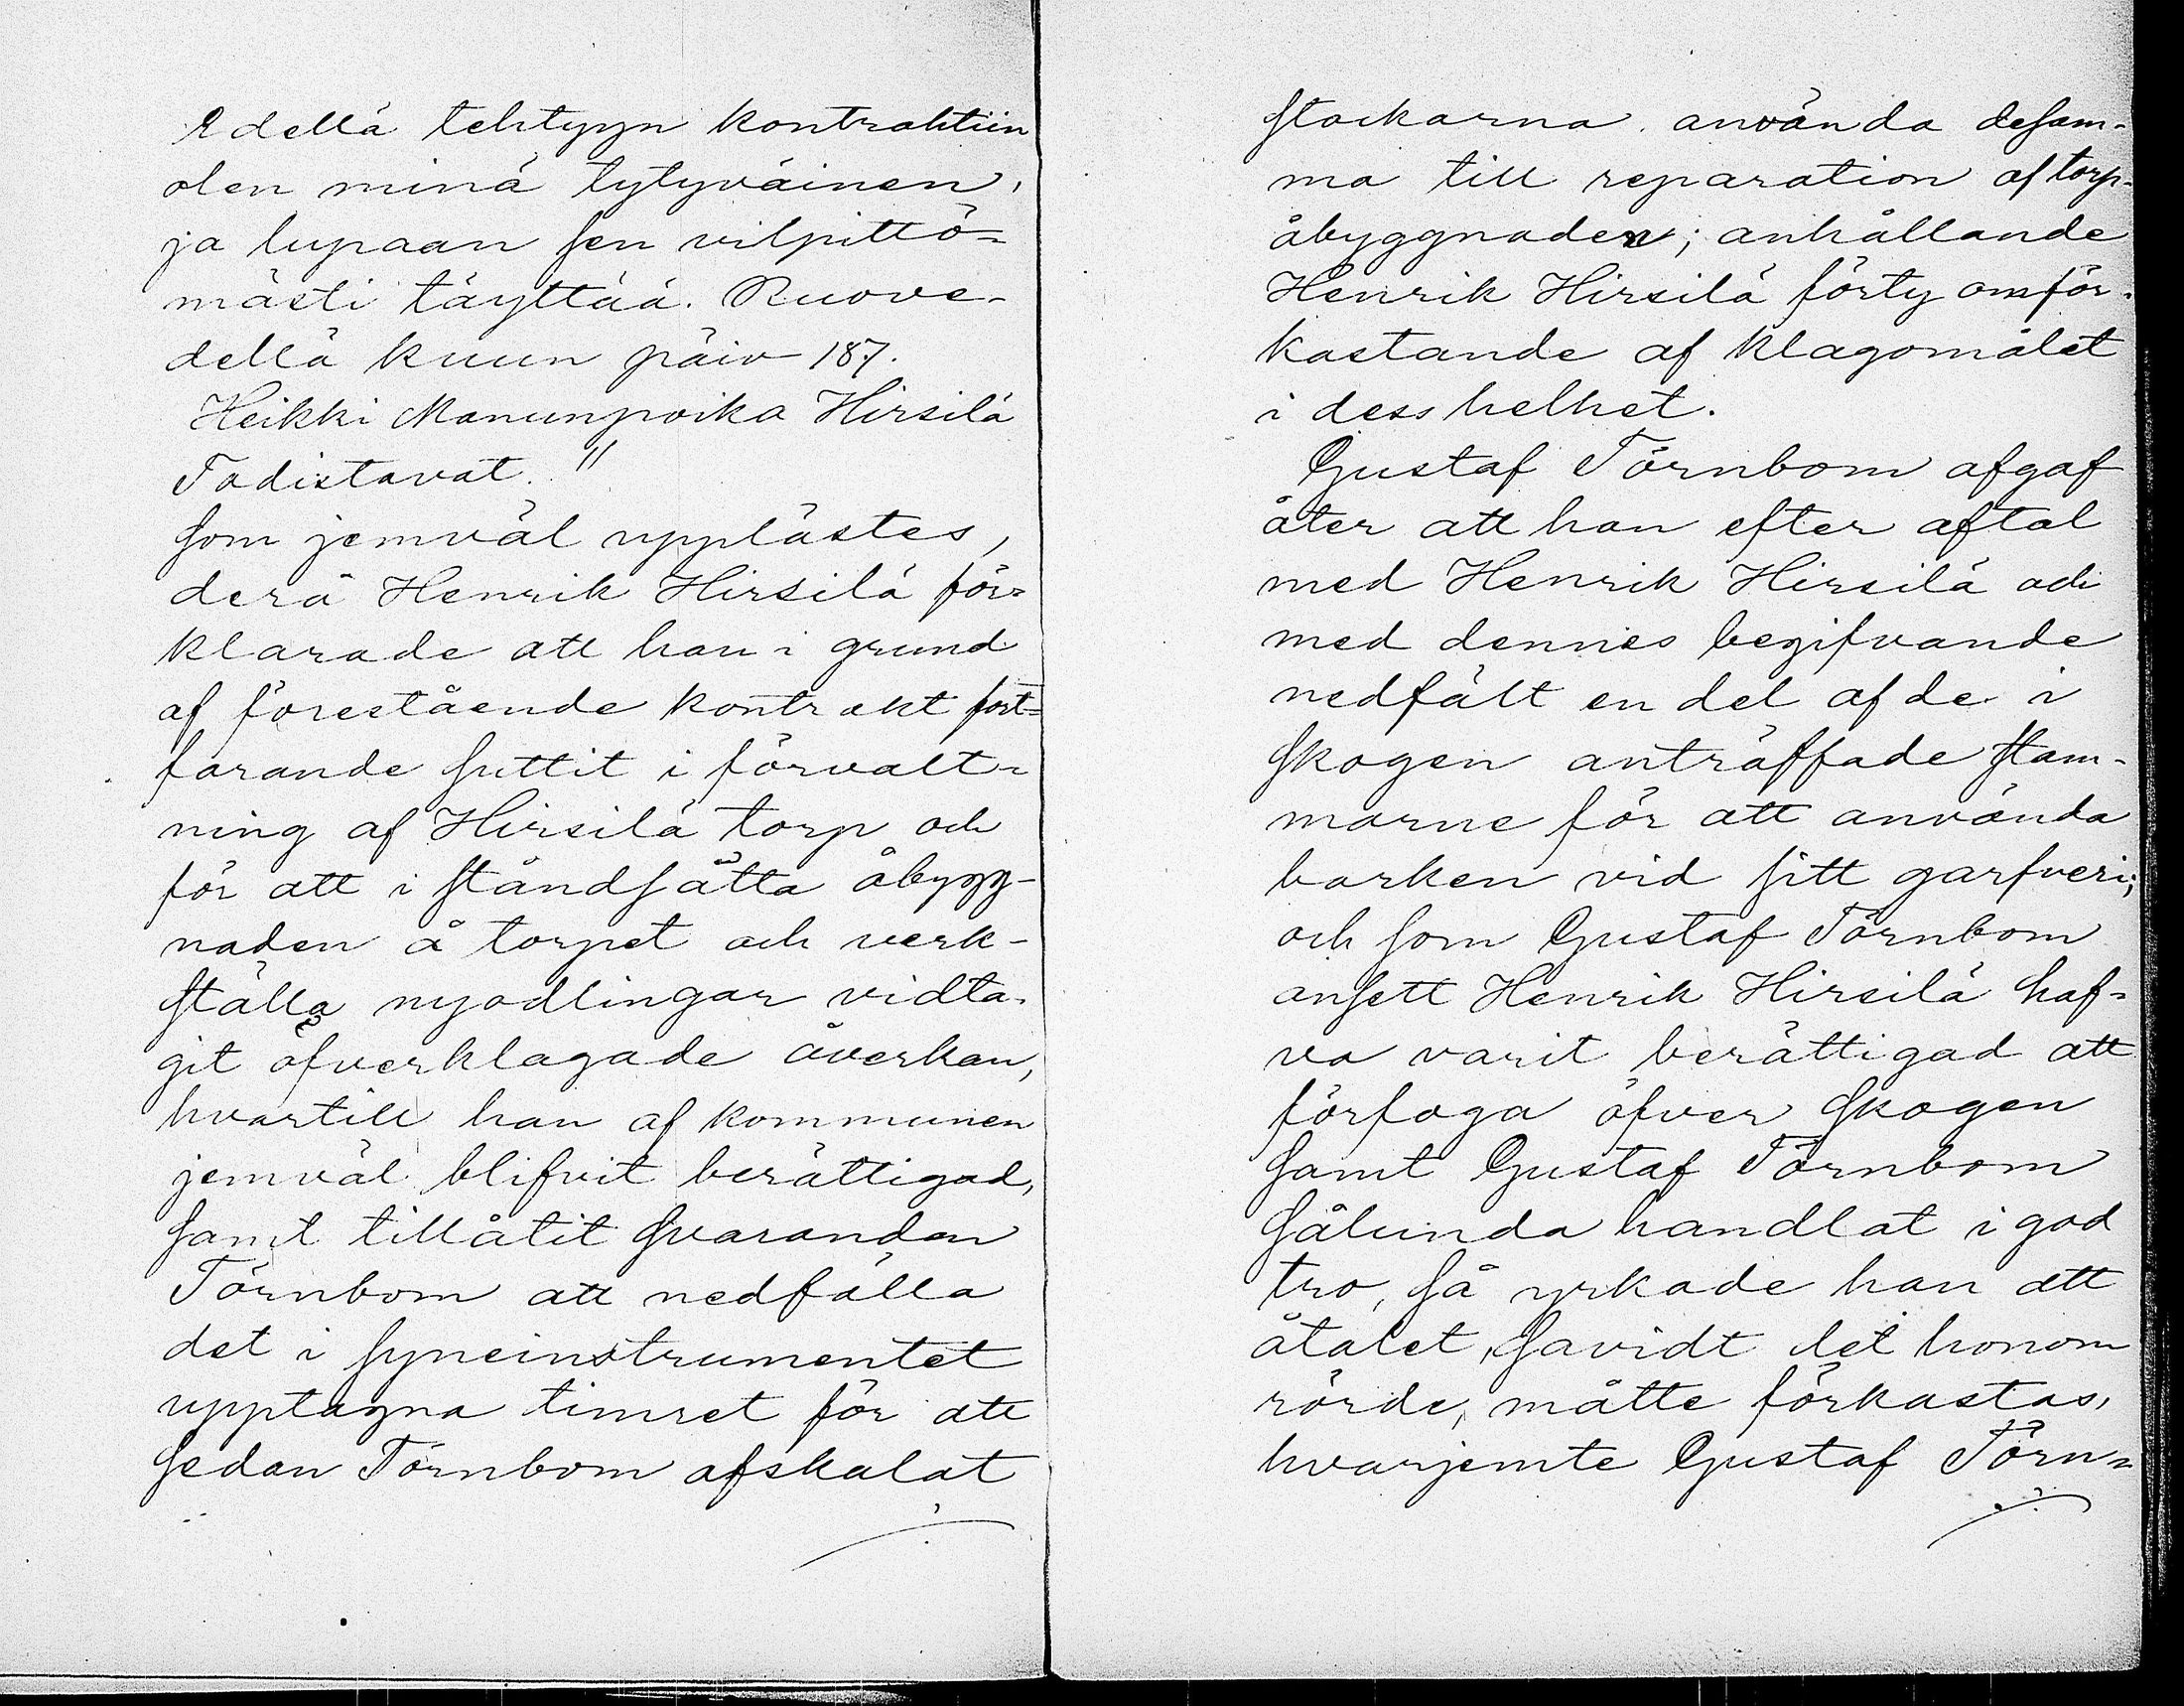 Edellä tehtyyn kontrahtiin
olen minä tytyväinen,
ja lupaan sen vilpittö=
mästi täyttää. Ruove-
dellä kuun päiv 187.
Heikki Manunpoika Hirsilä
Todistavat."
som jemväl upplästes,
derå Henrik Hirsilä för=
klarade att han i grund
af förestående kontrakt fort=
farande suttit i förvalt-
ning af Hirsilä torp och
för att i ståndsätta åbygg-
naden å torpet och verk-
ställa nyodlingar vidta-
git öfverklagade åverkan,
hvartill han af kommunen
jemväl blifvit berättigad,
samt tillåtit svaranden
Törnbom att nedfälla
det i syneinstrumentet
upptagna timret för att
sedan Törnbom afskalat
stockarna använda desam-
ma till reparation af torp-
åbyggnaden; anhållande
Henrik Hirsilä förty om för-
kastande af klagomålet
i dess helhet.
Gustaf Törnbom afgaf
åter att han efter aftal
med Henrik Hirsilä och
med dennes begifvande
nedfält en del af de i
skogen anträffade stam-
marne för att använda
barken vid sitt garfveri;
och som Gustaf Törnbom
ansett Henrik Hirsilä haf=
va varit berättigad att
förfoga öfver skogen
samt Gustaf Törnbom
sålunda handlat i god
tro, så yrkade han att
åtalet, savidt det honom
rörde, måtte förkastas,
hvarjemte Gustaf Törn=